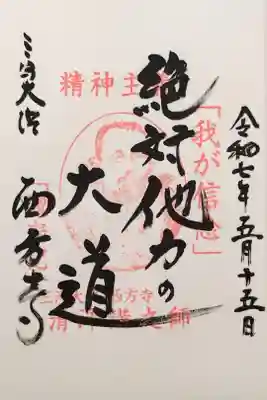 令和七年五月十五日
「我が信念」
精神主
絶対他力の
大道
三河大浜
西方寺
西方寺
満之師